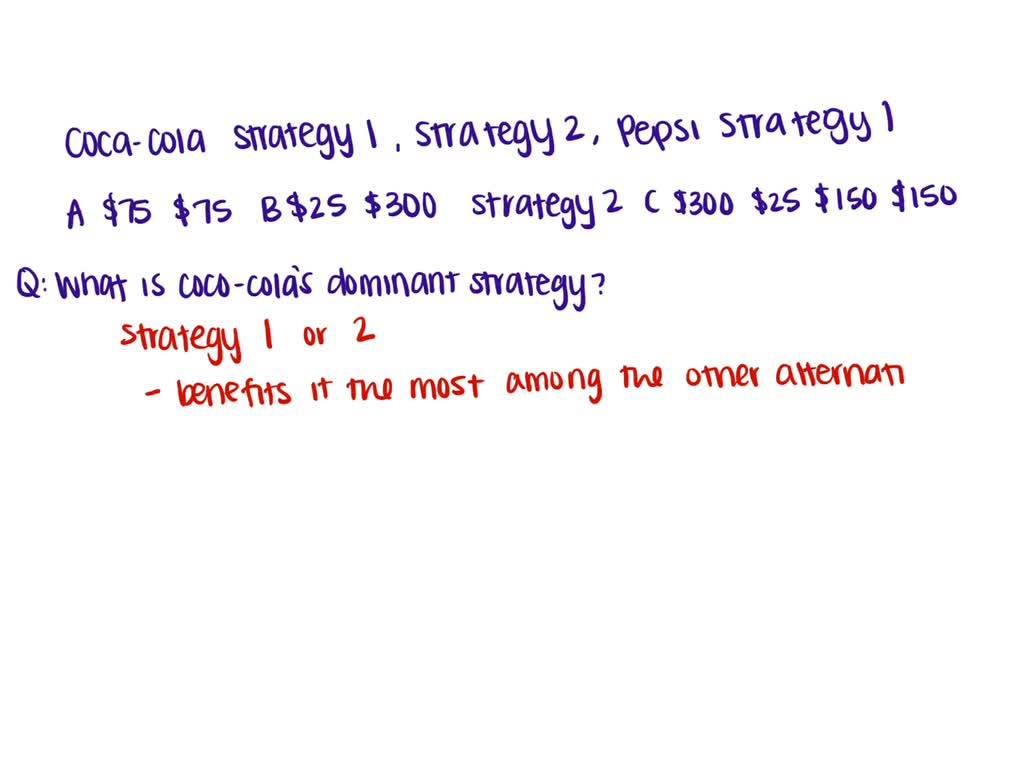 coca-cola strategy 1, strategy 2, pepsi strategy 1
A $75 $75 B $25 $300 strategy 2 C $300 $25 $150 $150
Q: What is coco-cola's dominant strategy?
strategy 1 or 2
- benefits it the most among the other alternati